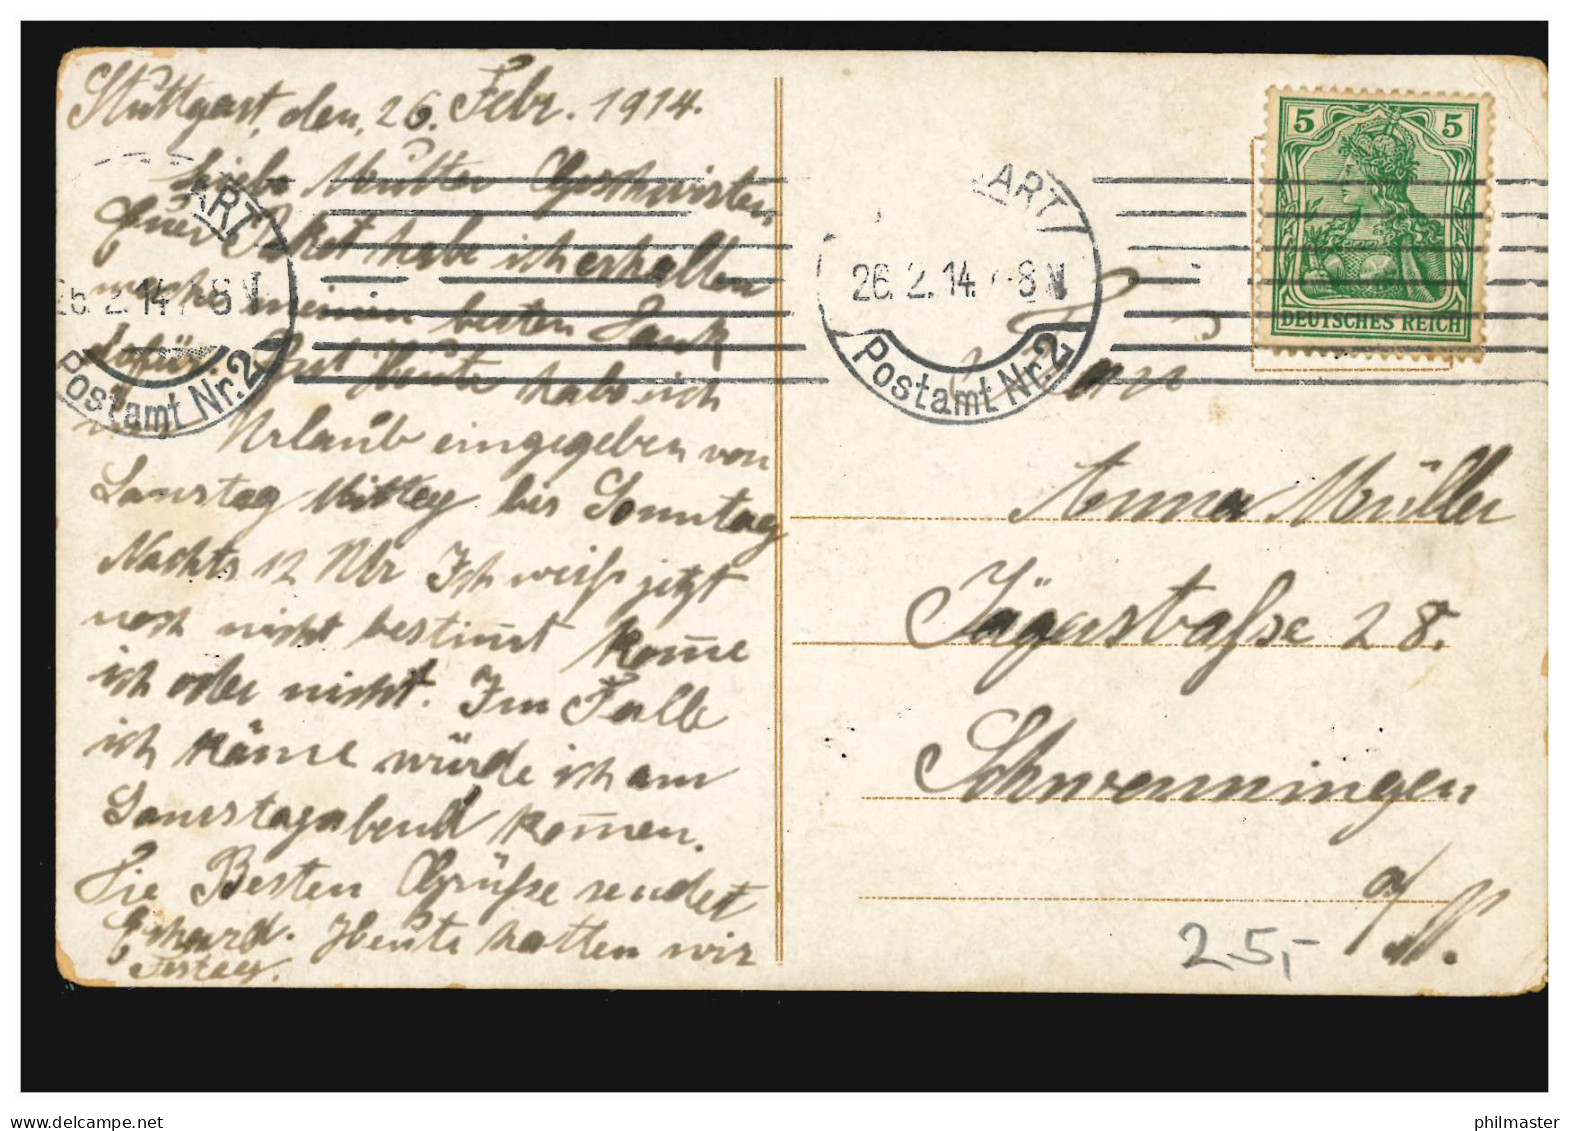 Stuttgart, den 26. Febr. 1914.
Liebe Mutter Geschwister,
Euer Paket habe ich erhalten
meinen besten Dank
dafür. Heute habe ich
Urlaub eingegeben von
Samstag Mittag bis Sonntag
Nachts 12 Uhr Ich weiß jetzt
noch nicht bestim̅t kom̅e
ich oder nicht. Im Falle
ich käme würde ich am
Samstagabend kom̅en.
Die Besten Grüße sendet
Erhard. Heute hatten wir
Festag.
ART
26. 2. 14 8 N
Postamt Nr. 2
ART
26. 2. 14. 8 N
Postamt Nr. 2
5 5
DEUTSCHES REICH
Frau
Anna Müller
Jägerstraße 28.
Schwenningen
a/N.
25,-
www.delcampe.net
philmaster